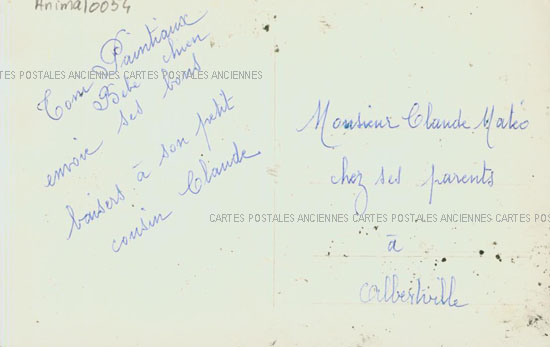 Animal0054
Tom Paintiaux
Bébé chien
envoie ses bons
baisers à son petit
cousin Claude
Monsieur Claude Matéo
chez ses parents
à
Albertville
CARTES POSTALES ANCIENNES CARTES POSTALES ANCIENNES
CARTES POSTALES ANCIENNES CARTES POSTALES ANCIENNES CARTES POSTALES ANCIENNES CARTES POS